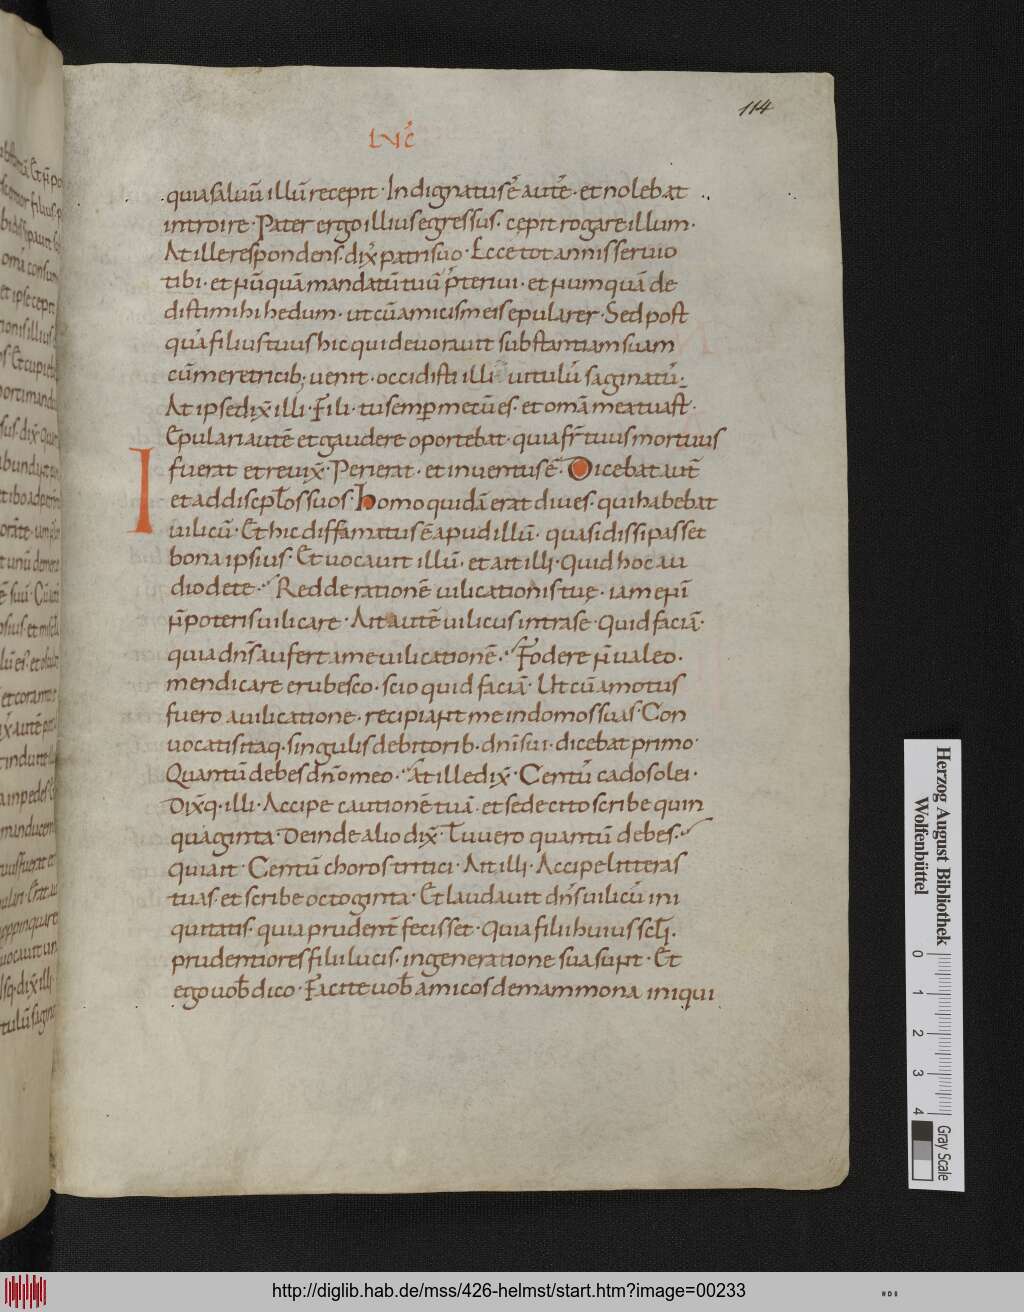 114
LUC̄
quia saluū illū recepit · Indignatus ē autē · et nolebat
introire · Pater ergo illius egressus · cępit rogare illum ·
At ille respondens · dix̄ patri suo · Ecce tot annis seruio
tibi · et nūquā mandatū tuū p̄teriui · et numquā de
disti mihi hedum · ut cū amicis meis epularer · Sed post
quā filius tuus hic qui deuorauit substantiam suam
cū meretricib; uenit · occidisti illi uitulū saginatū ·
At ipse dix̄ illi · Fili · tu semp̄ mecū es · et om̄a mea tua st̄ ·
Epulari autē et gaudere oportebat · quia fr̄ tuus mortuus
fuerat et reuix̄ · Perierat · et inuentus ē · Dicebat aut̄
I et ad discip̄los suos · Homo quidā erat diues · qui habebat
uilicū · Et hic diffamatus ē apud illū · quasi dissipasset
bona ipsius · Et uocauit illū · et ait illi · Quid hoc au
dio de te · Redde rationē uilicationis tuę · iam enī
n̄ poteris uilicare · Ait autē uilicus intra se · Quid faciā ·
quia dn̄s aufert a me uilicationē · Fodere n̄ ualeo ·
mendicare erubesco · scio quid faciā · Ut cū amotus
fuero a uilicatione · recipiant me in domos suas · Con
uocatis itaq · singulis debitorib · dn̄i sui · dicebat primo ·
Quantū debes dn̄o meo · At ille dix̄ · Centū cados olei ·
Dix̄q · illi · Accipe cautionē tuā · et sede cito scribe quin
quaginta · Deinde alio dix̄ · Tu uero quantū debes ·
qui ait · Centū choros tritici · Ait illi · Accipe litteras
tuas · et scribe octoginta · Et laudauit dn̄s uilicū ini
quitatis · quia prudent̄ fecisset · Quia filii huius scl̄i ·
prudentiores filii lucis · in generatione sua sunt · Et
ego uob̄ dico · Facite uob̄ amicos de mammona iniqui
Herzog August Bibliothek
Wolfenbüttel
0 1 2 3 4
Gray Scale
http://diglib.hab.de/mss/426-helmst/start.htm?image=00233